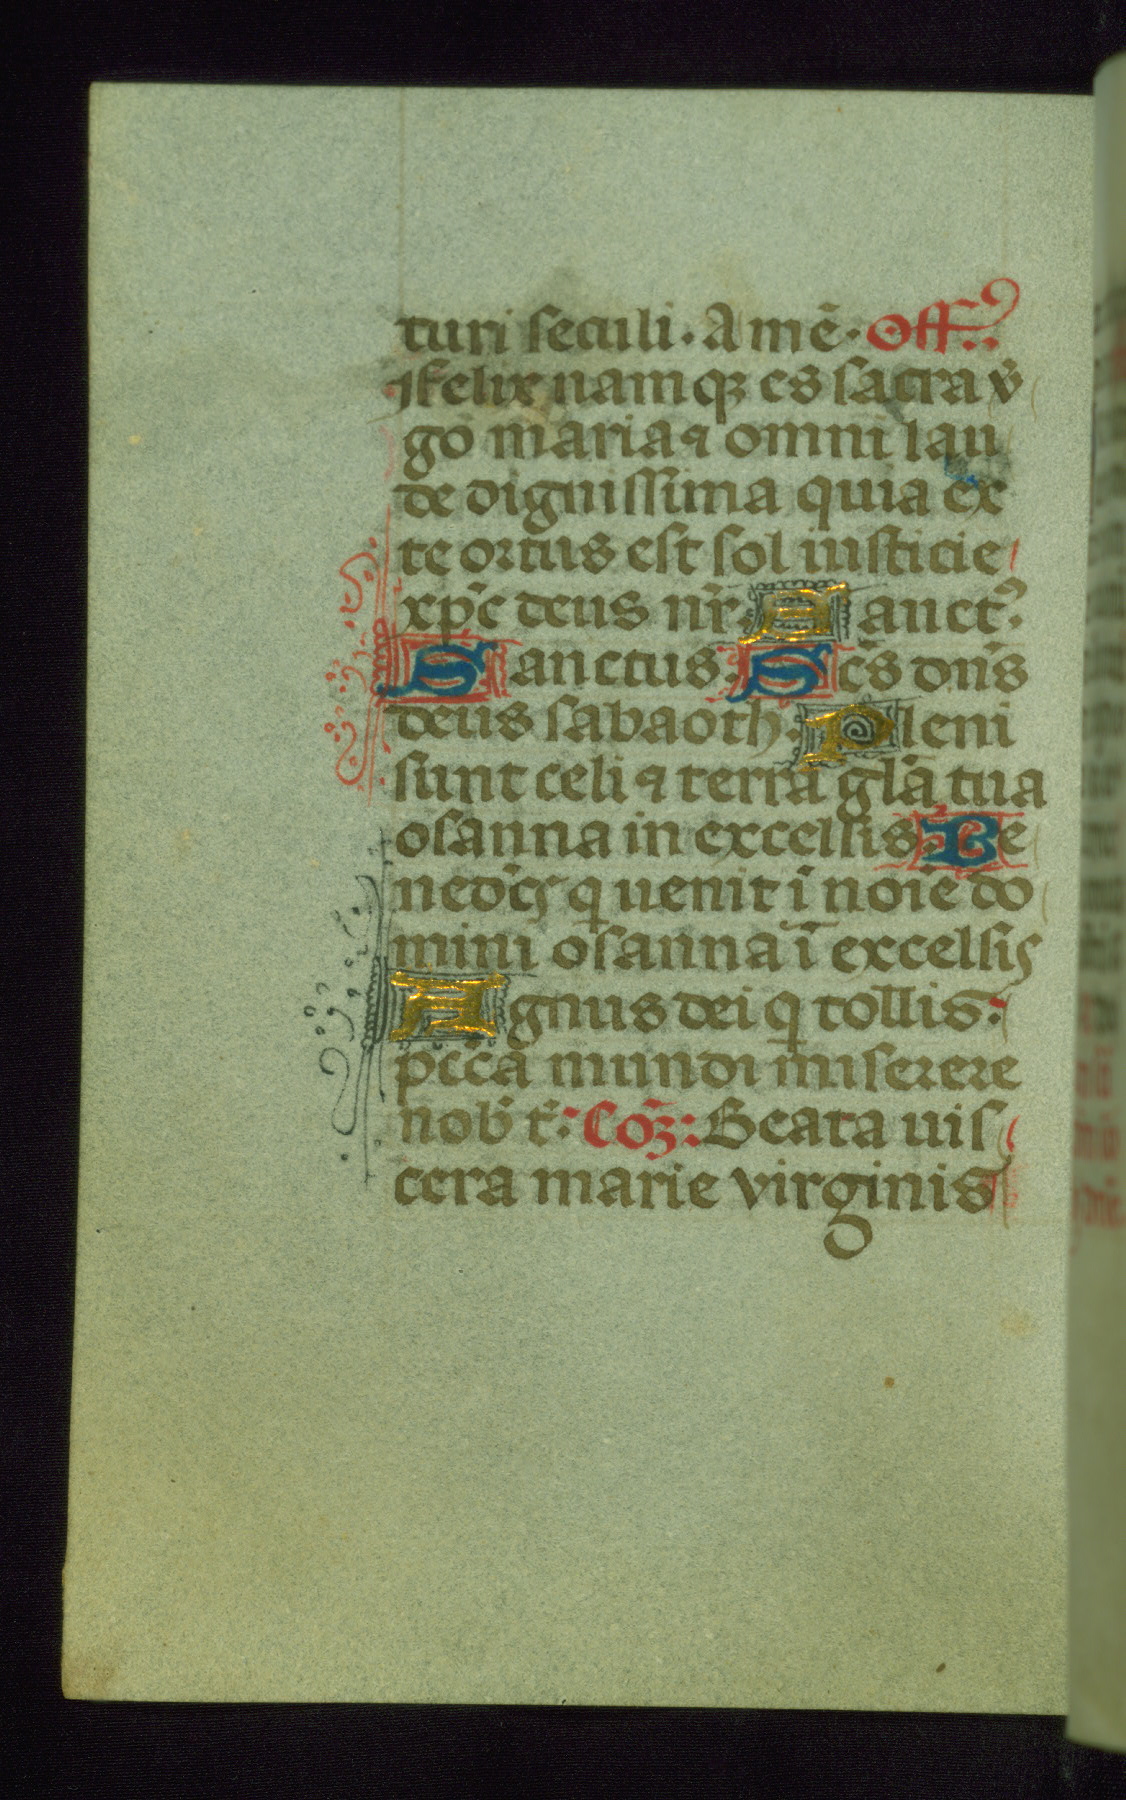 turi seculi. Amē. Off.
Felix namqꝫ es sacra v̾
go maria ⁊ omni lau
de dignissima quia ex
te ortus est sol iusticie
xp̄c deus nr̄. Aanctꝰ.
Sanctus. Sc̄s dn̄s
deus sabaoth. Pleni
sunt celi ⁊ terra gl̄a tua
osanna in excelsis. Be
nedc̄ꝰ q̄ uenit ī noīe do
mini osanna ī excelsis
Agnus dei q̄ tollis.
pcc̄a mundi miserere
nob̄ t̄. Cōꝫ: Beata uis
cera marie virginis